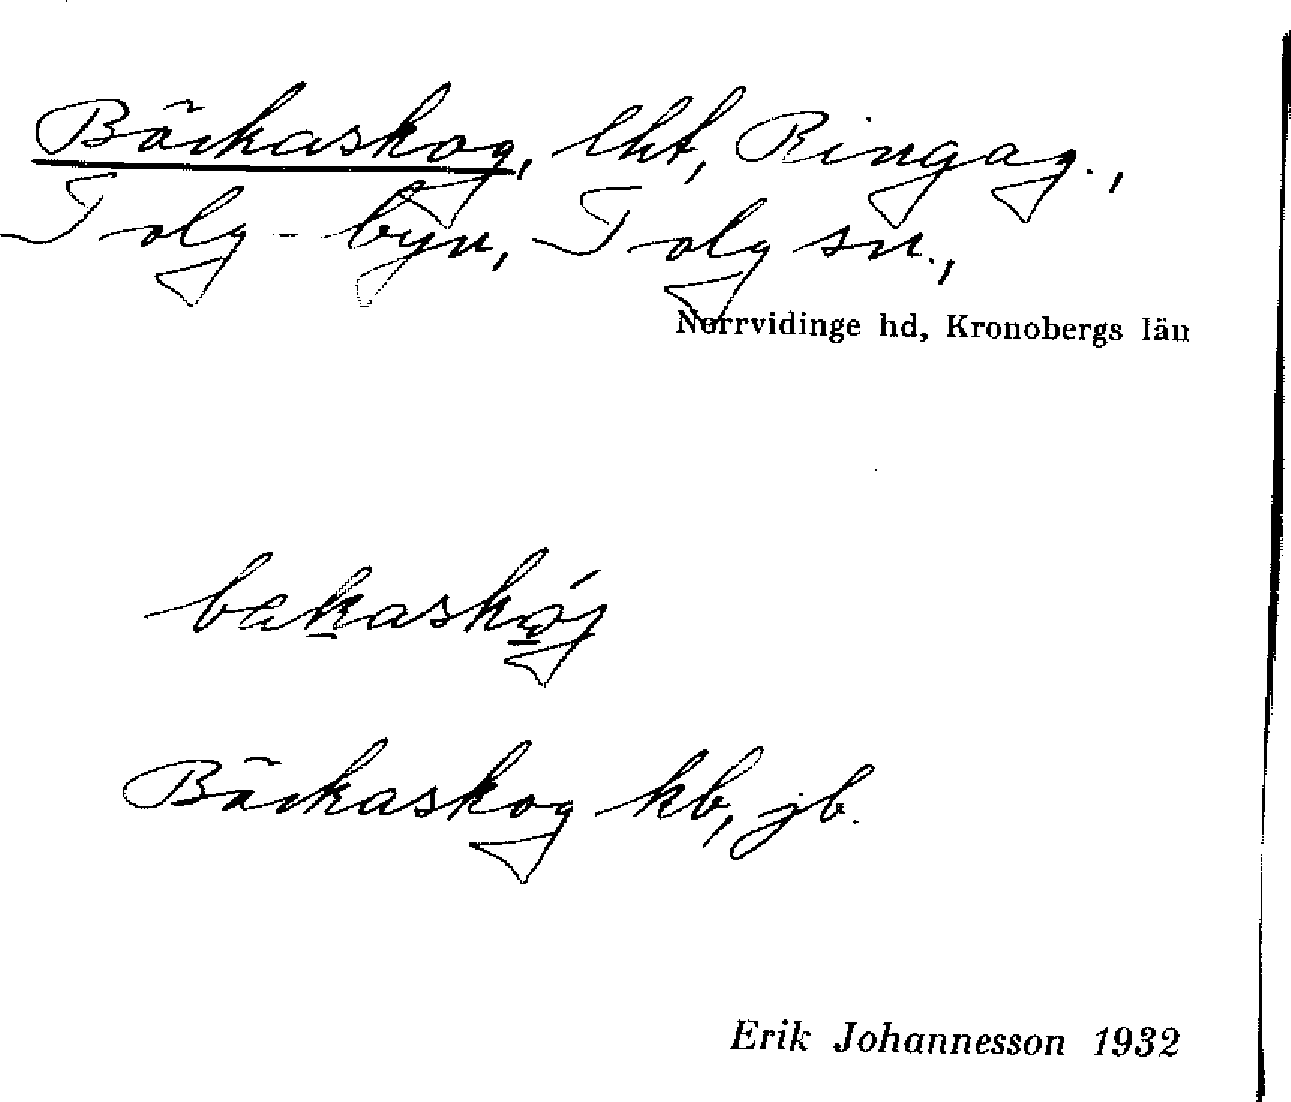 Bäckaskog, lht, Ringag.,
Tolg-byn, Tolg sn.,
Norrvidinge hd, Kronobergs län
Bäckaskog kb, jb.
Erik Johannesson 1932